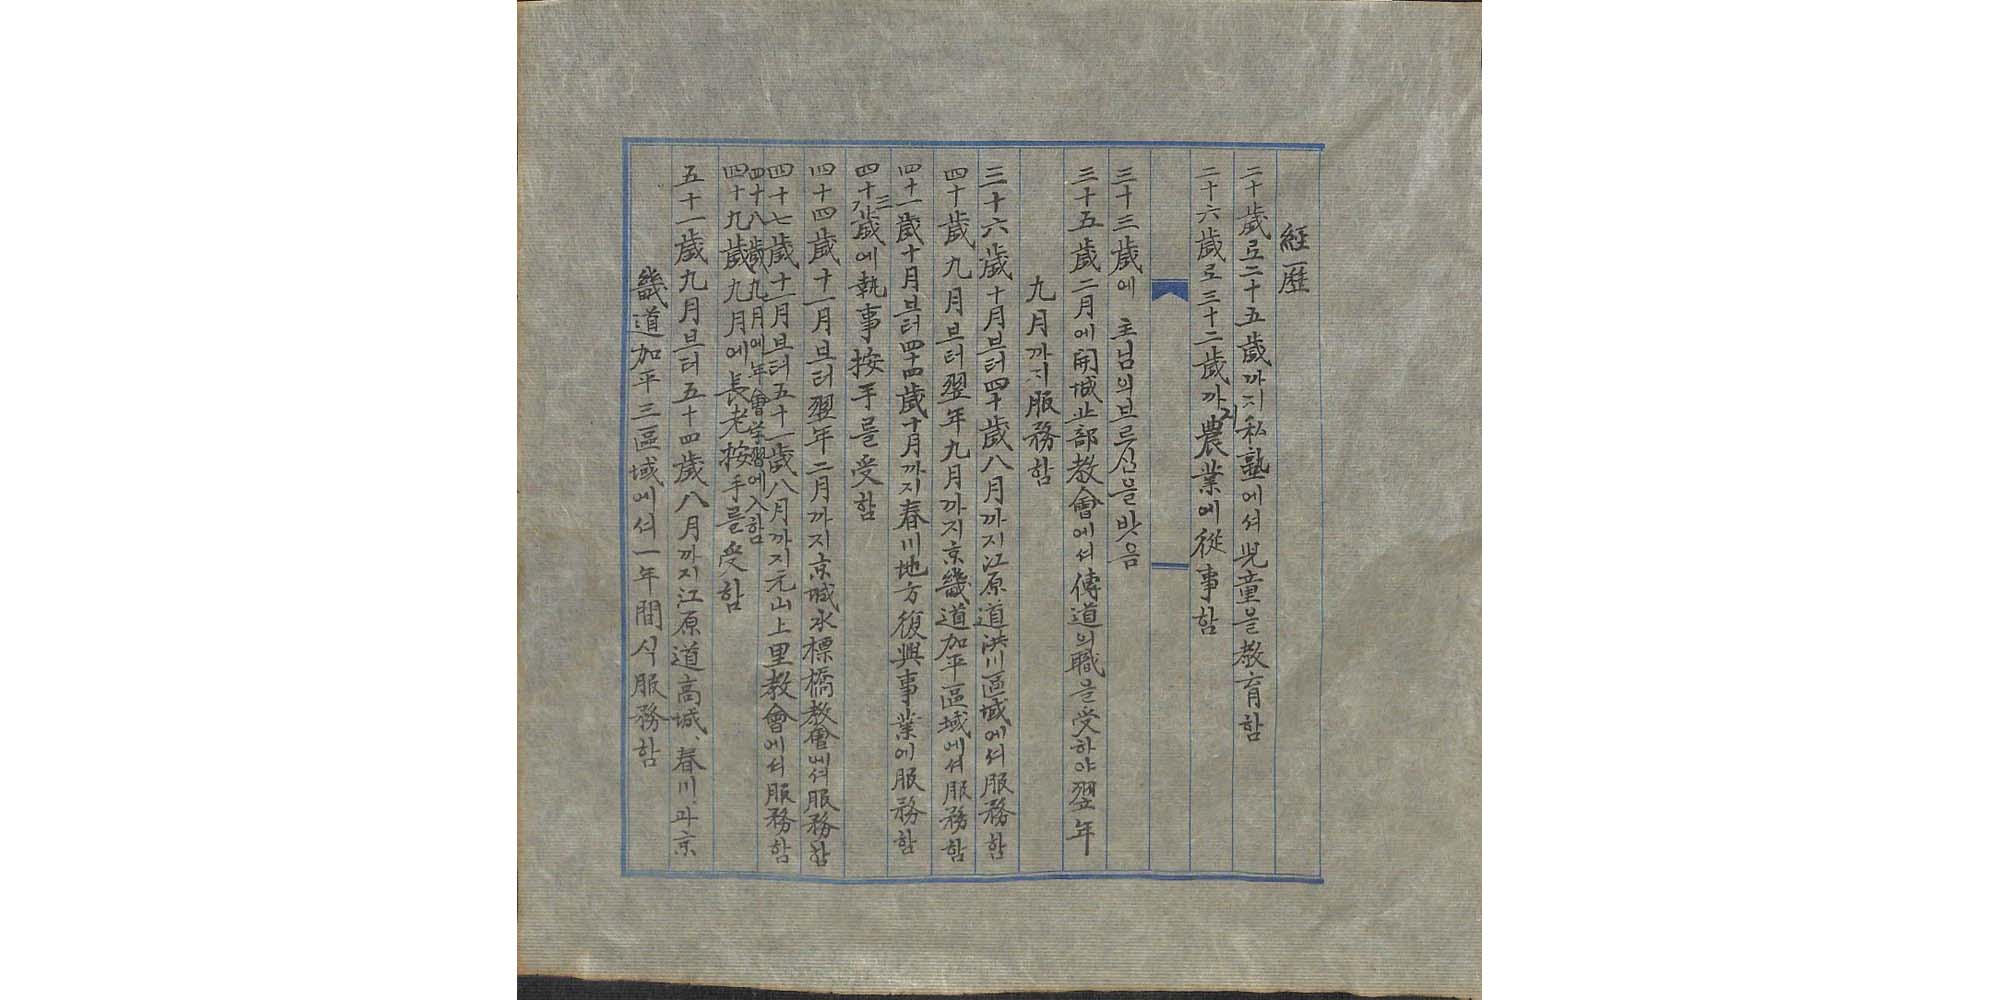 經歷
二十歲로二十五歲까지私塾에셔児童을敎育함
二十六歲로三十二歲까지農業에從事함
三十三歲에 主님의브르심을밧음
三十五歲二月에開城北部敎會에셔傳道의職을受하야翌年
九月까지服務함
三十六歲十月브터四十歲八月까지江原道洪川區域에셔服務함
四十歲九月브터翌年九月까지京畿道加平區域에셔服務함
四十一歲十月브터四十四歲十月까지春川地方復興事業에服務함
四十三歲에執事按手를受함
四十四歲十一月브터翌年二月까지京城水標橋敎會에셔服務함
四十七歲十一月브터五十一歲八月까지元山上里敎會에셔服務함
四十八歲九月에年會学習에入함
四十九歲九月에長老按手를受함
五十一歲九月브터五十四歲八月까지江原道高城、春川、과京
畿道加平三區域에셔一年間식服務함